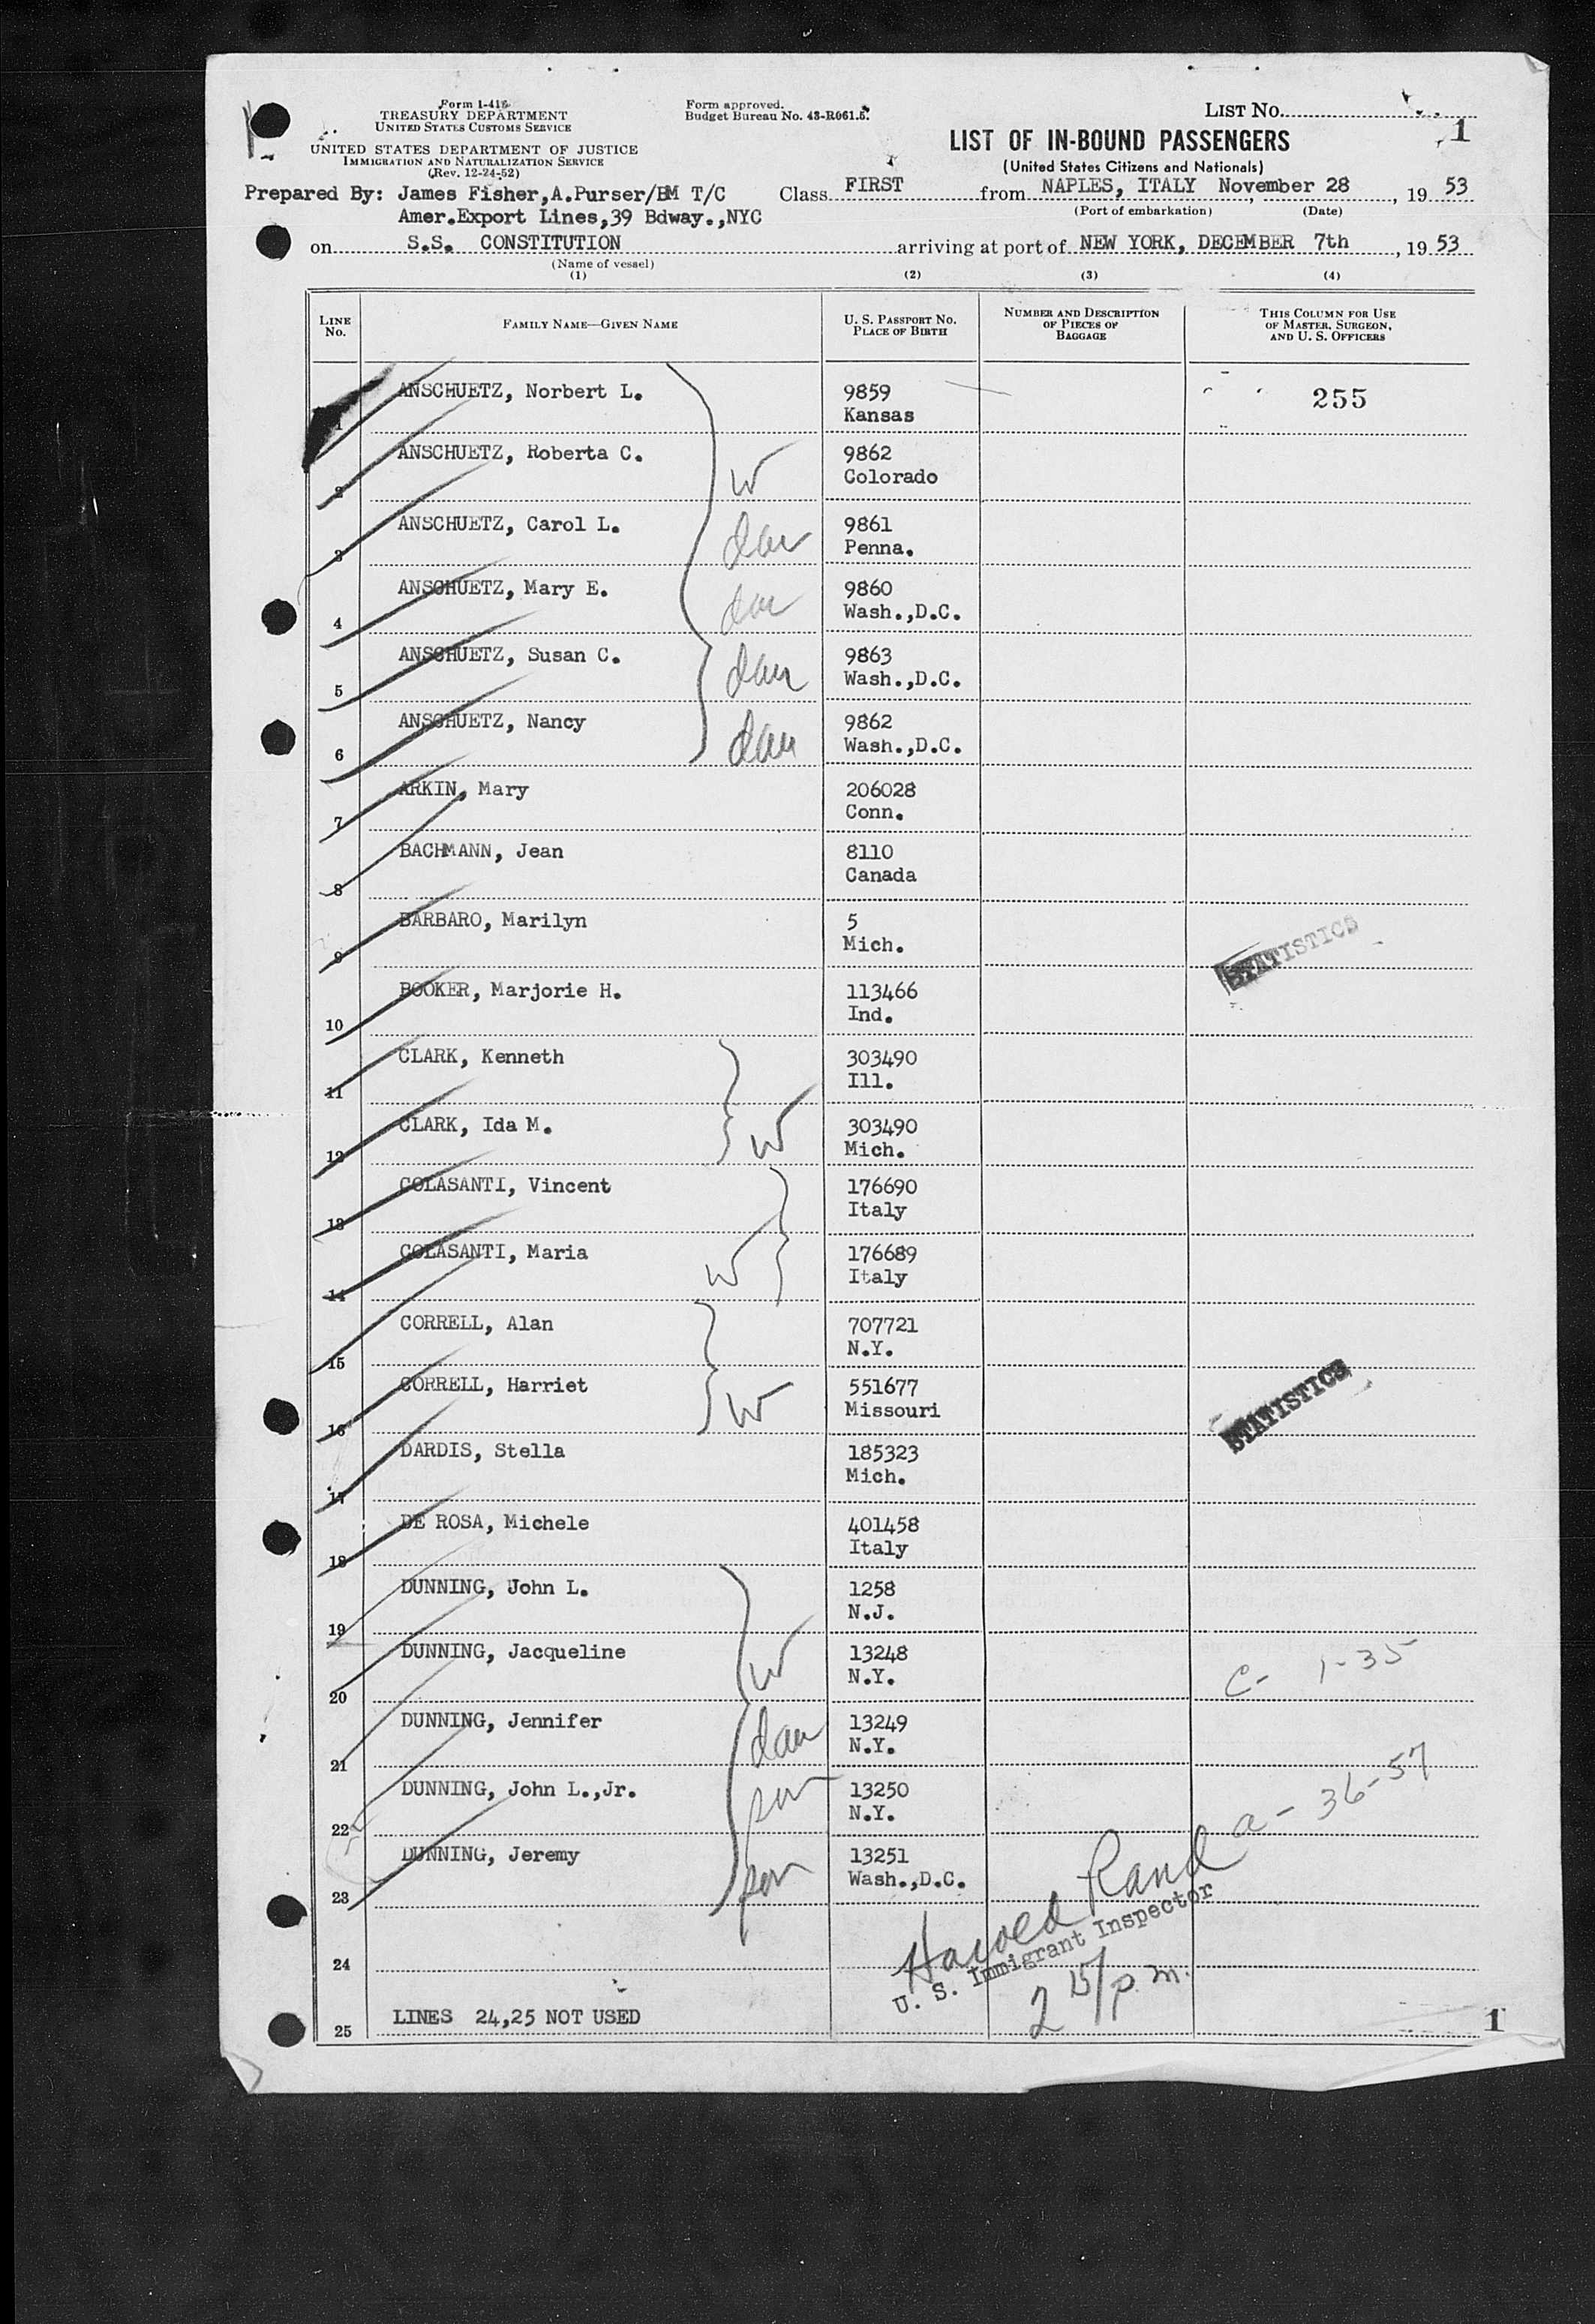 Form I-418
TREASURY DEPARTMENT
UNITED STATES CUSTOMS SERVICE
UNITED STATES DEPARTMENT OF JUSTICE
IMMIGRATION AND NATURALIZATION SERVICE
(Rev. 12-24-52)
Form approved.
Budget Bureau No. 43-R061.5.
LIST NO.
1
LIST OF IN-BOUND PASSENGERS
(United States Citizens and Nationals)
Prepared By: James Fisher,A.Purser/BM T/C Class FIRST from NAPLES, ITALY November 28, 19 53
(Port of embarkation) (Date)
Amer.Export Lines,39 Bdway.,NYC
on S.S. CONSTITUTION arriving at port of NEW YORK, DECEMBER 7th, 19 53
(Name of vessel)
(1) (2) (3) (4)
LINE NO. FAMILY NAME—GIVEN NAME U. S. PASSPORT NO. PLACE OF BIRTH NUMBER AND DESCRIPTION OF PIECES OF BAGGAGE THIS COLUMN FOR USE OF MASTER, SURGEON, AND U. S. OFFICERS
1 ANSCHUETZ, Norbert L. 9859 255
Kansas
2 ANSCHUETZ, Roberta C. W 9862
Colorado
3 ANSCHUETZ, Carol L. dau 9861
Penna.
4 ANSCHUETZ, Mary E. dau 9860
Wash.,D.C.
5 ANSCHUETZ, Susan C. dau 9863
Wash.,D.C.
6 ANSCHUETZ, Nancy dau 9862
Wash.,D.C.
7 ARKIN, Mary 206028
Conn.
8 BACHMANN, Jean 8110
Canada
9 BARBARO, Marilyn 5
Mich.
STATISTICS
10 BOOKER, Marjorie H. 113466
Ind.
11 CLARK, Kenneth 303490
Ill.
12 CLARK, Ida M. W 303490
Mich.
13 COLASANTI, Vincent 176690
Italy
14 COLASANTI, Maria W 176689
Italy
15 CORRELL, Alan 707721
N.Y.
16 CORRELL, Harriet W 551677
Missouri
STATISTICS
17 DARDIS, Stella 185323
Mich.
18 DE ROSA, Michele 401458
Italy
19 DUNNING, John L. 1258
N.J.
20 DUNNING, Jacqueline W 13248
N.Y.
C- 1-35
21 DUNNING, Jennifer dau 13249
N.Y.
22 DUNNING, John L.,Jr. son 13250
N.Y.
a- 36-57
23 DUNNING, Jeremy son 13251
Wash.,D.C.
Harold Rand
U. S. Immigrant Inspector
24
2 15/p.m.
25 LINES 24,25 NOT USED
1